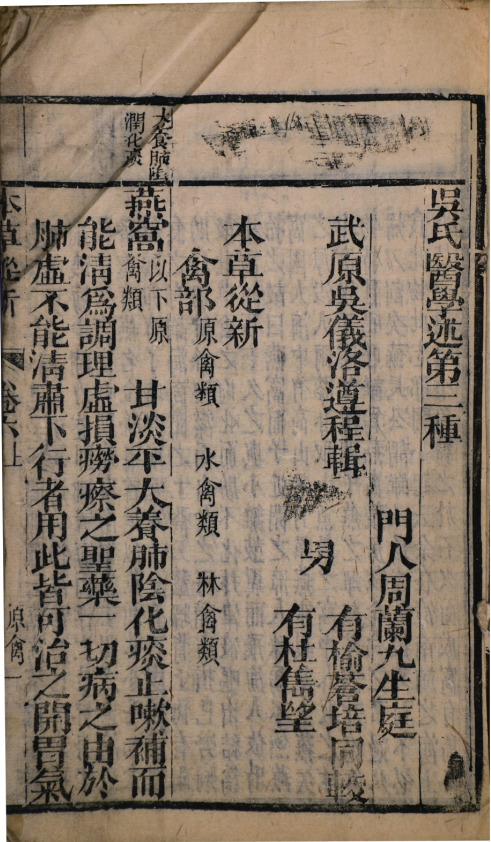 吳氏醫學述第三種
門人周蘭九生庭
武原吳儀洛遵程輯
男
有榆荅培同較
有杜雋望
本草從新
禽部 原禽類 水禽類 林禽類
大養肺陰
潤化痰
燕窩 以下原禽類 甘淡平大養肺陰化痰止嗽補而
能清為調理虛損癆瘵之聖藥一切病之由於
肺虛不能清肅下行者用此皆可治之開胃氣
本草從新 卷六上 原禽 一